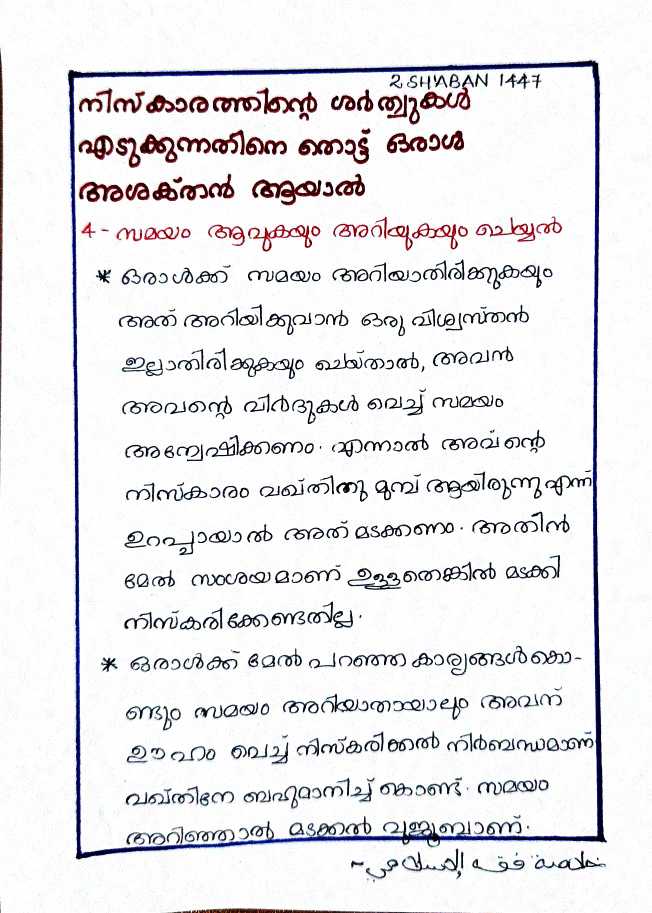 2 SHA'BAN 1447
നിസ്കാരത്തിന്റെ ശർത്വുകൾ
എടുക്കുന്നതിനെ തൊട്ട് ഒരാൾ
അശക്തൻ ആയാൽ
4 - സമയം ആവുകയും അറിയുകയും ചെയ്യൽ
* ഒരാൾക്ക് സമയം അറിയാതിരിക്കുകയും
അത് അറിയിക്കുവാൻ ഒരു വിശ്വസ്തൻ
ഇല്ലാതിരിക്കുകയും ചെയ്താൽ, അവൻ
അവന്റെ വിർദുകൾ വെച്ച് സമയം
അന്വേഷിക്കണം. എന്നാൽ അവന്റെ
നിസ്കാരം വഖ്തിനു മുമ്പ് ആയിരുന്നു എന്ന്
ഉറപ്പായാൽ അത് മടക്കണം. അതിൻ
മേൽ സംശയമാണ് ഉള്ളതെങ്കിൽ മടക്കി
നിസ്കരിക്കേണ്ടതില്ല.
* ഒരാൾക്ക് മേൽ പറഞ്ഞ കാര്യങ്ങൾ കൊ-
ണ്ടും സമയം അറിയാതായാലും അവന്
ഊഹം വെച്ച് നിസ്കരിക്കൽ നിർബന്ധമാണ്
വഖ്തിനേ ബഹുമാനിച്ച് കൊണ്ട്. സമയം
അറിഞ്ഞാൽ മടക്കൽ വുജൂബാണ്.